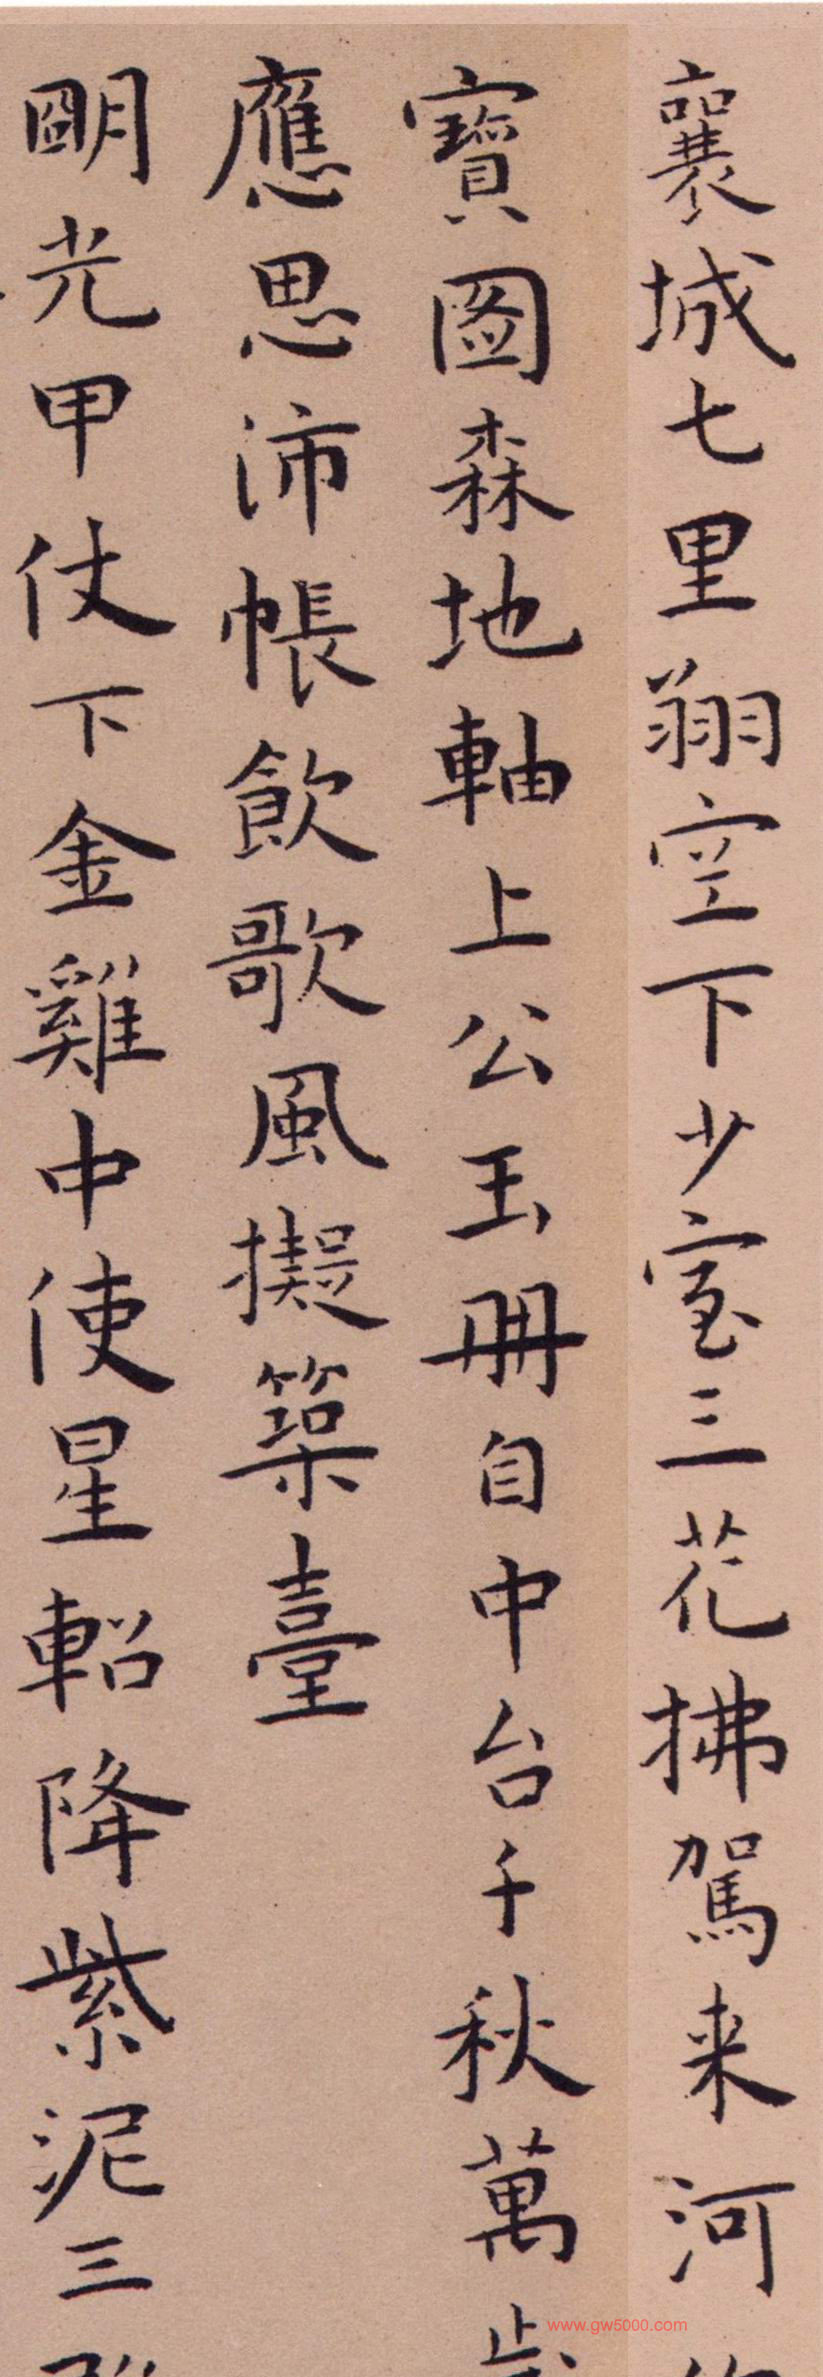 襄城七里翔空下少室三花拂駕来河
寶圖森地軸上公玉冊自中台千秋萬
應思沛帳飲歌風擬築臺
明光甲仗下金雞中使星軺降紫泥三
www.gw5000.com